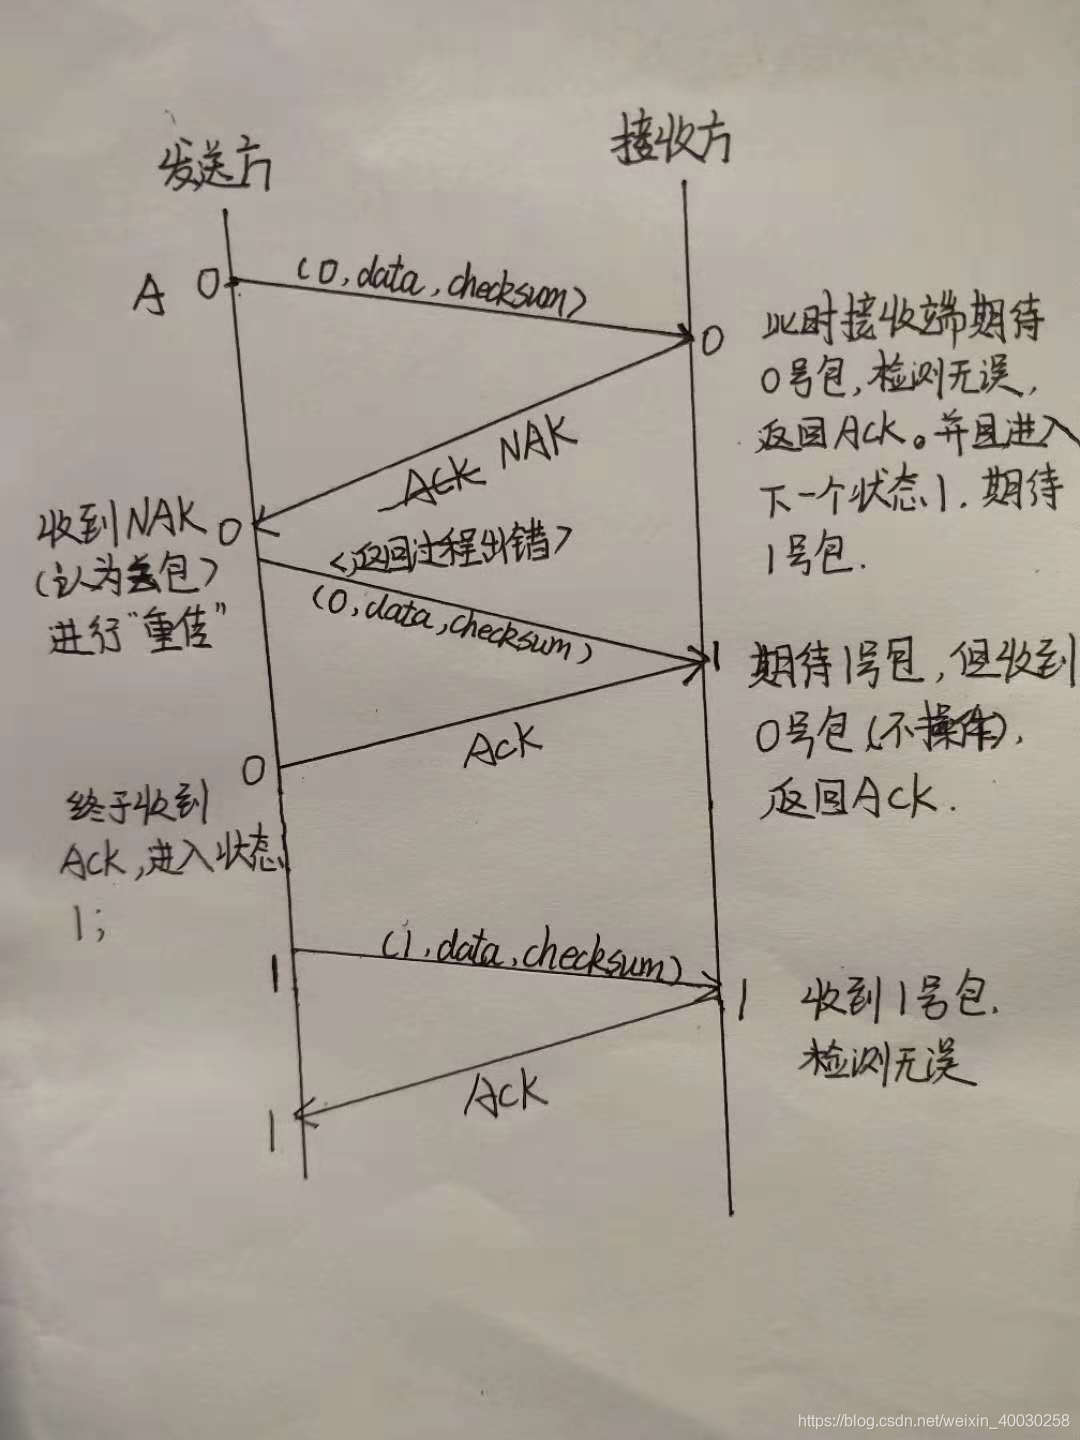 发送方
接收方
A 0
(0,data,checksum)
0
此时接收端期待
0号包,检测无误,
返回ACK。并且进入
下一个状态1.期待
1号包.
ACK NAK
<返回过程出错>
收到NAK 0
(认为丢包)
进行"重传"
(0,data,checksum)
1
期待1号包,但收到
0号包(不操作),
返回ACK.
Ack
0
终于收到
Ack,进入状态
1;
1
(1,data,checksum)
1
收到1号包.
检测无误
Ack
1
https://blog.csdn.net/weixin_40030258